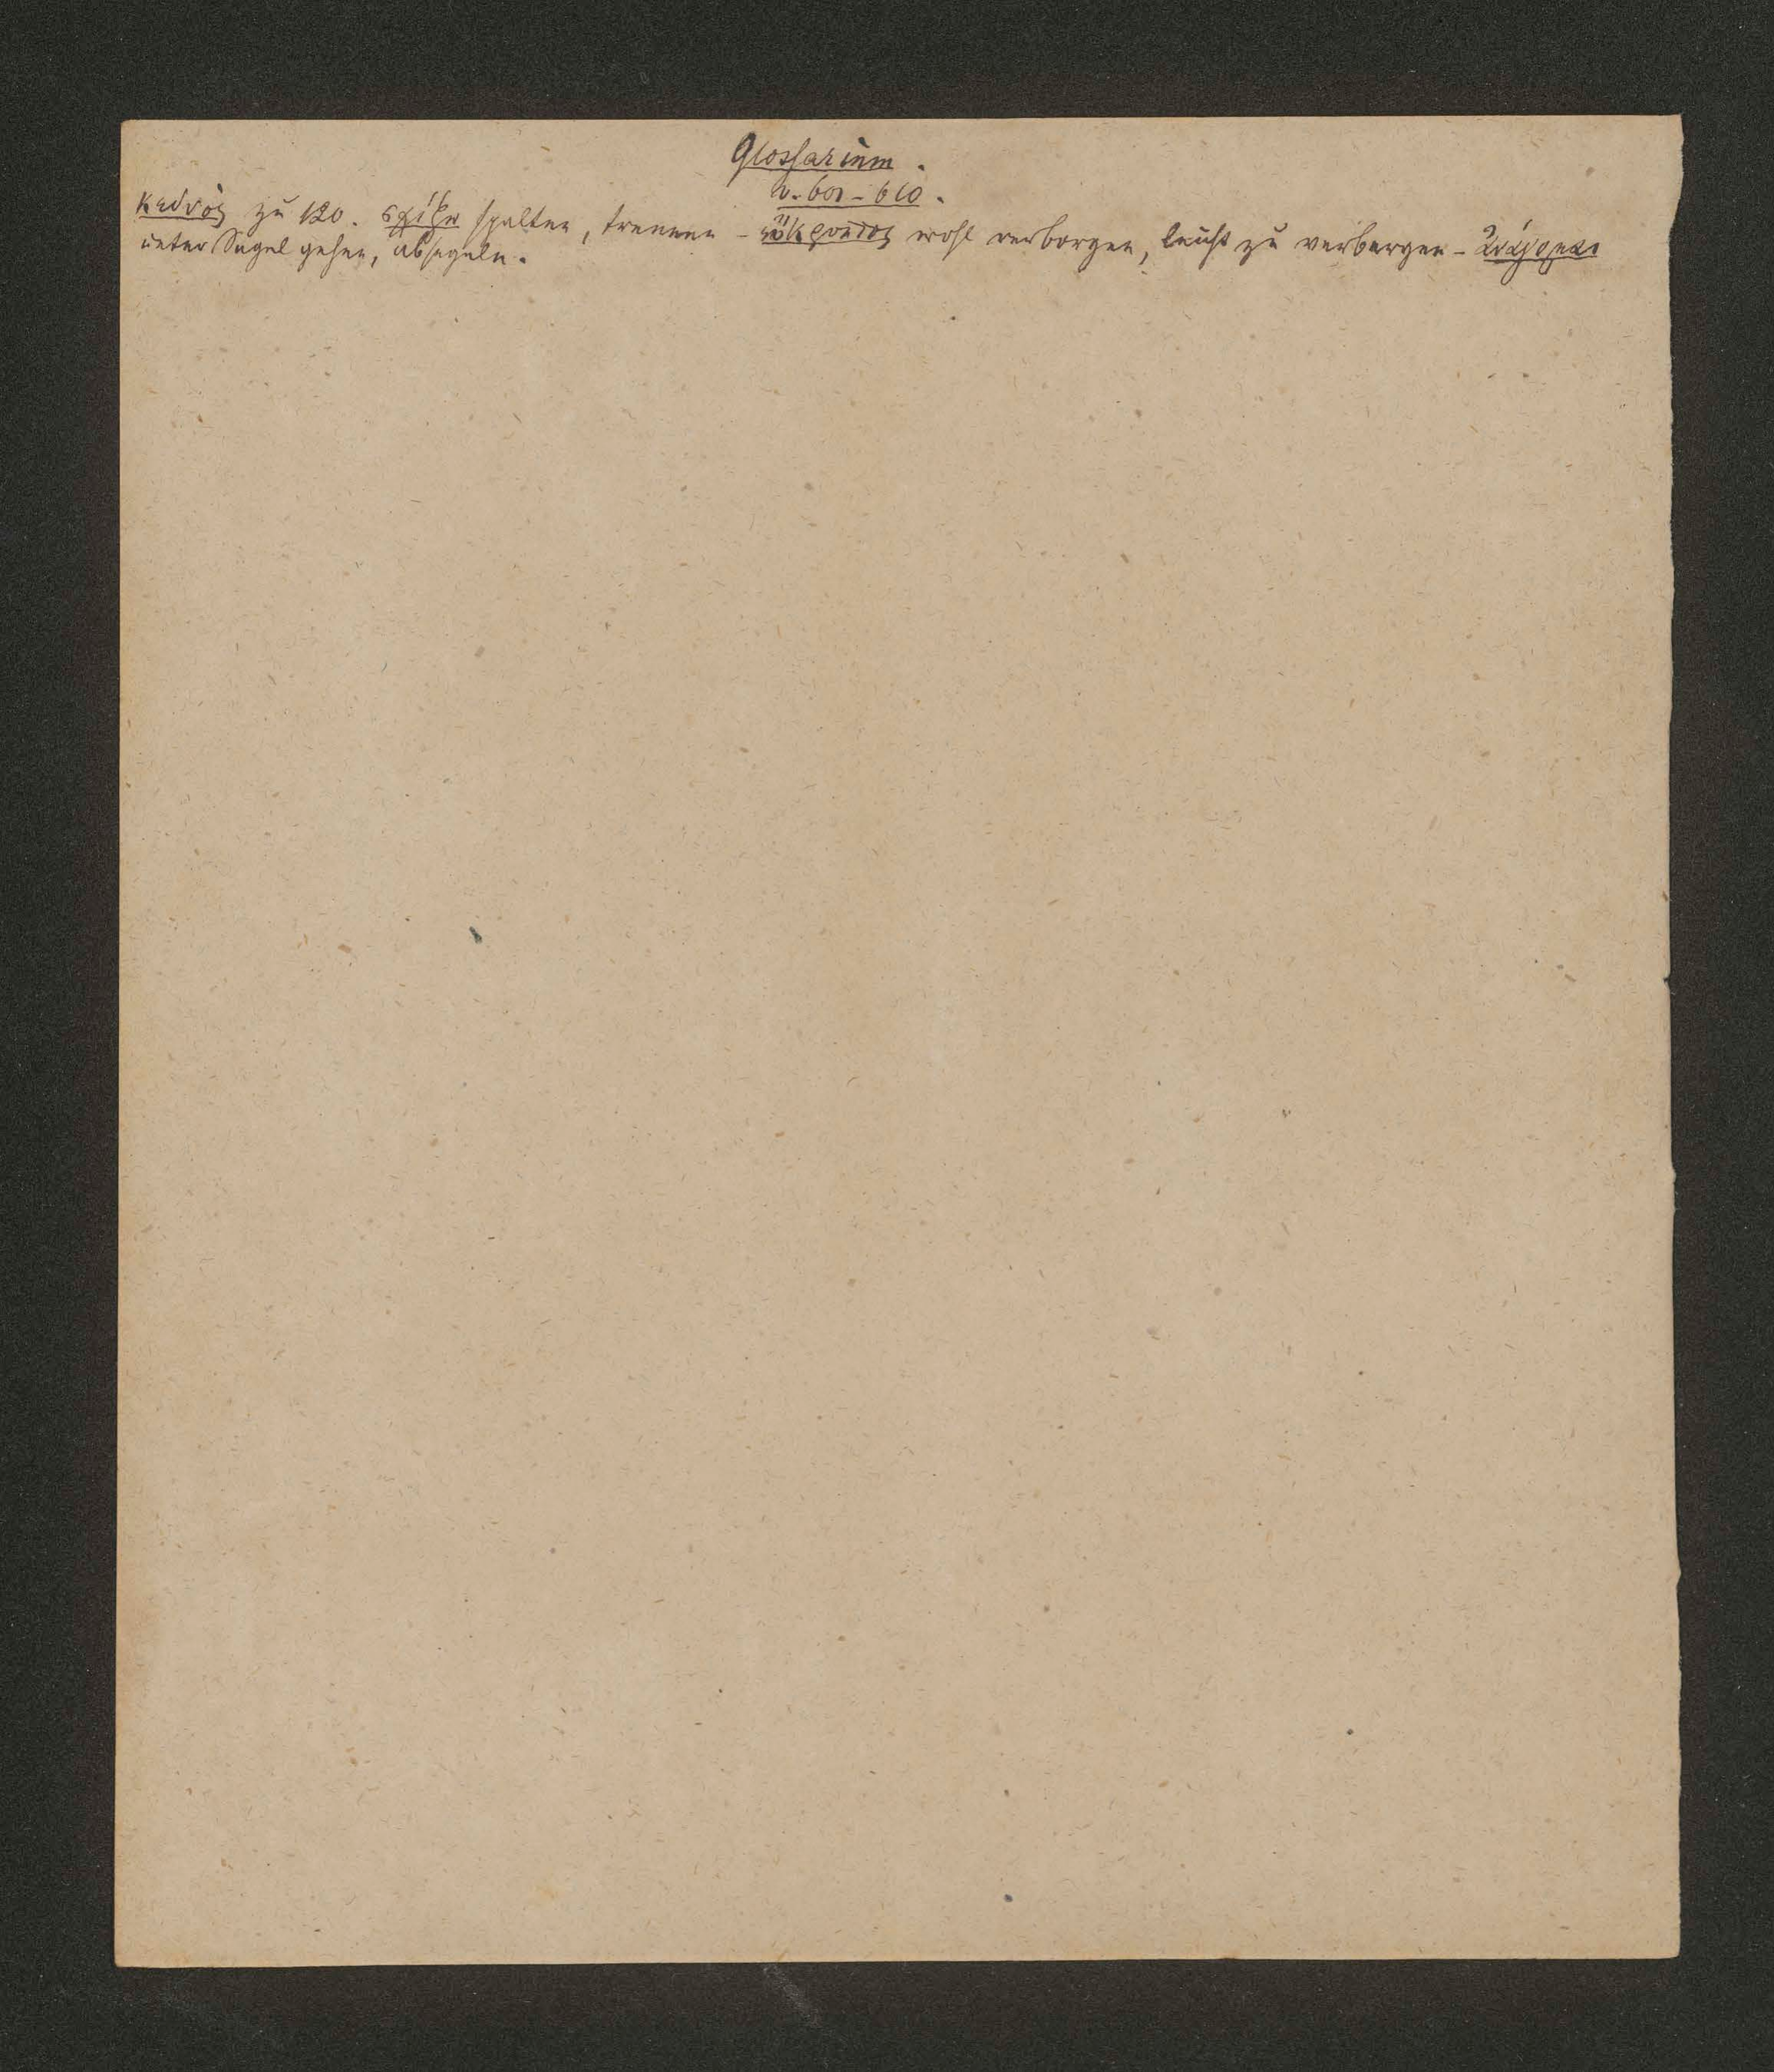 Glossarium.
v. 601 - 610.
κεδνός zu 120. σχίζω spalten, trennen - εὔκρυπτος wohl verborgen, leicht zu verbergen - ἀνάγομαι
unter Segel gehen, absegeln.